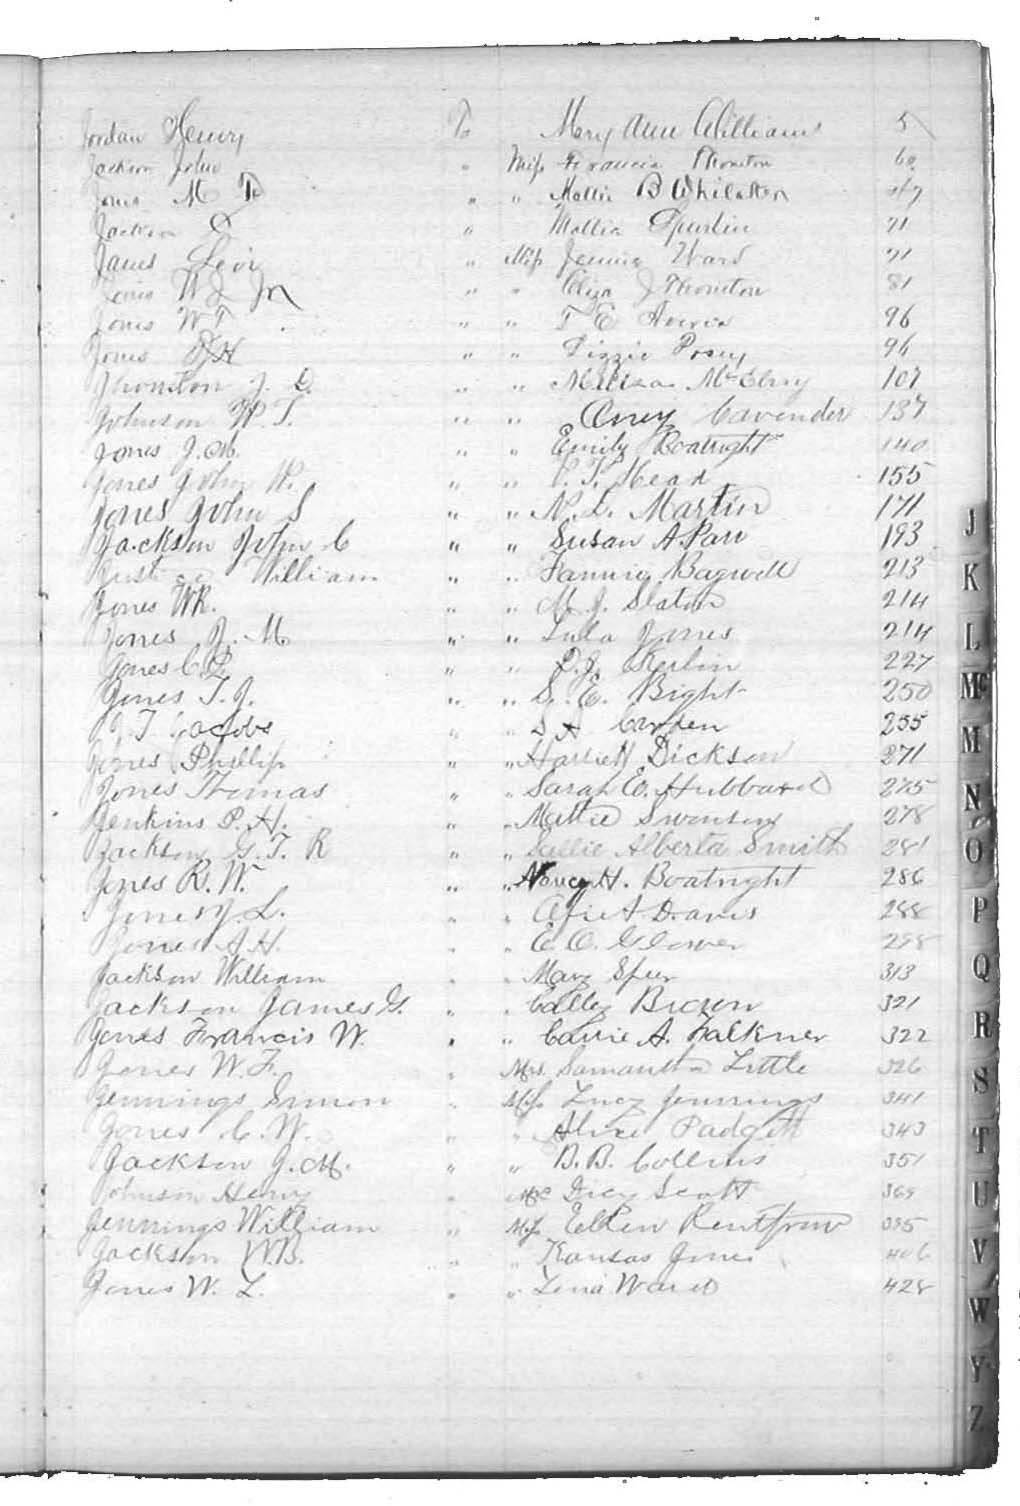 Jordan Henry To Mary Ann Williams 5
Jackson John " Miss Francis Thornton 60
Jones M " " Mollie B Whilaker
Jackson " Mollie Spurlin 71
James Levi " Miss Jennie Ward 71
Jones W J Jr " " Eliza J Thornton 81
Jones W T " " T E 96
Jones H " " Lizzie Posey 96
Jhonston J. D. " " Melissa McElroy 107
Johnson W. T. " " Cavender 137
Jones J. M. " " Emily Boatright 140
Jones John W. " " Head 155
Jones John S " " N. L. Martin 171
Jackson John C " " Susan A. Parr 193
William " " Fannie Bagwell 213
Jones W R. " " M. J. Slaton 214
Jones J. M " " Lula Jones 214
Jones C " " Kerlin 227
Jones T. J. " " S. E. Bight 250
J. T. Jacobs " " S A 255
Jones Phillip " " Harriett Dickson 271
Jones Thomas " " Sarah E. Hubbard 275
Jenkins P. H. " " Mattie Swonson 278
Jackson G. T. R " " Sallie Alberta Smith 281
Jones R. W. " " Nancy H. Boatright 286
Jones J. L. " " Davis 288
Jones A. H. " " E. O. Glower 298
Jackson William " " Mary Speer 313
Jackson James G. " " Calley Brown 321
Jones Francis W. " " Carrie A. Falkner 322
Jones W. F. " Mrs. Samantha Little 326
Jennings Simon " Miss Lucy Jennings 341
Jones C. W. " " Alice Padgett 343
Jackson J. M. " " B. B. Collins 351
Johnson Henry " Dicy Scott 369
Jennings William " Miss Ellen Rentfrow 395
Jackson W. B. " " Kansas Jones 406
Jones W. L. " " Lena Ward 428
J
K
L
Mc
M
N
O
P
Q
R
S
T
U
V
W
Y
Z